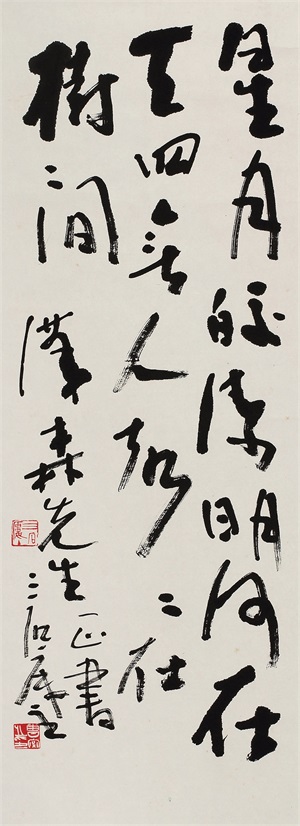 星月皎潔明河在
天四無人聲〻在
樹間
漢森先生正書
三石